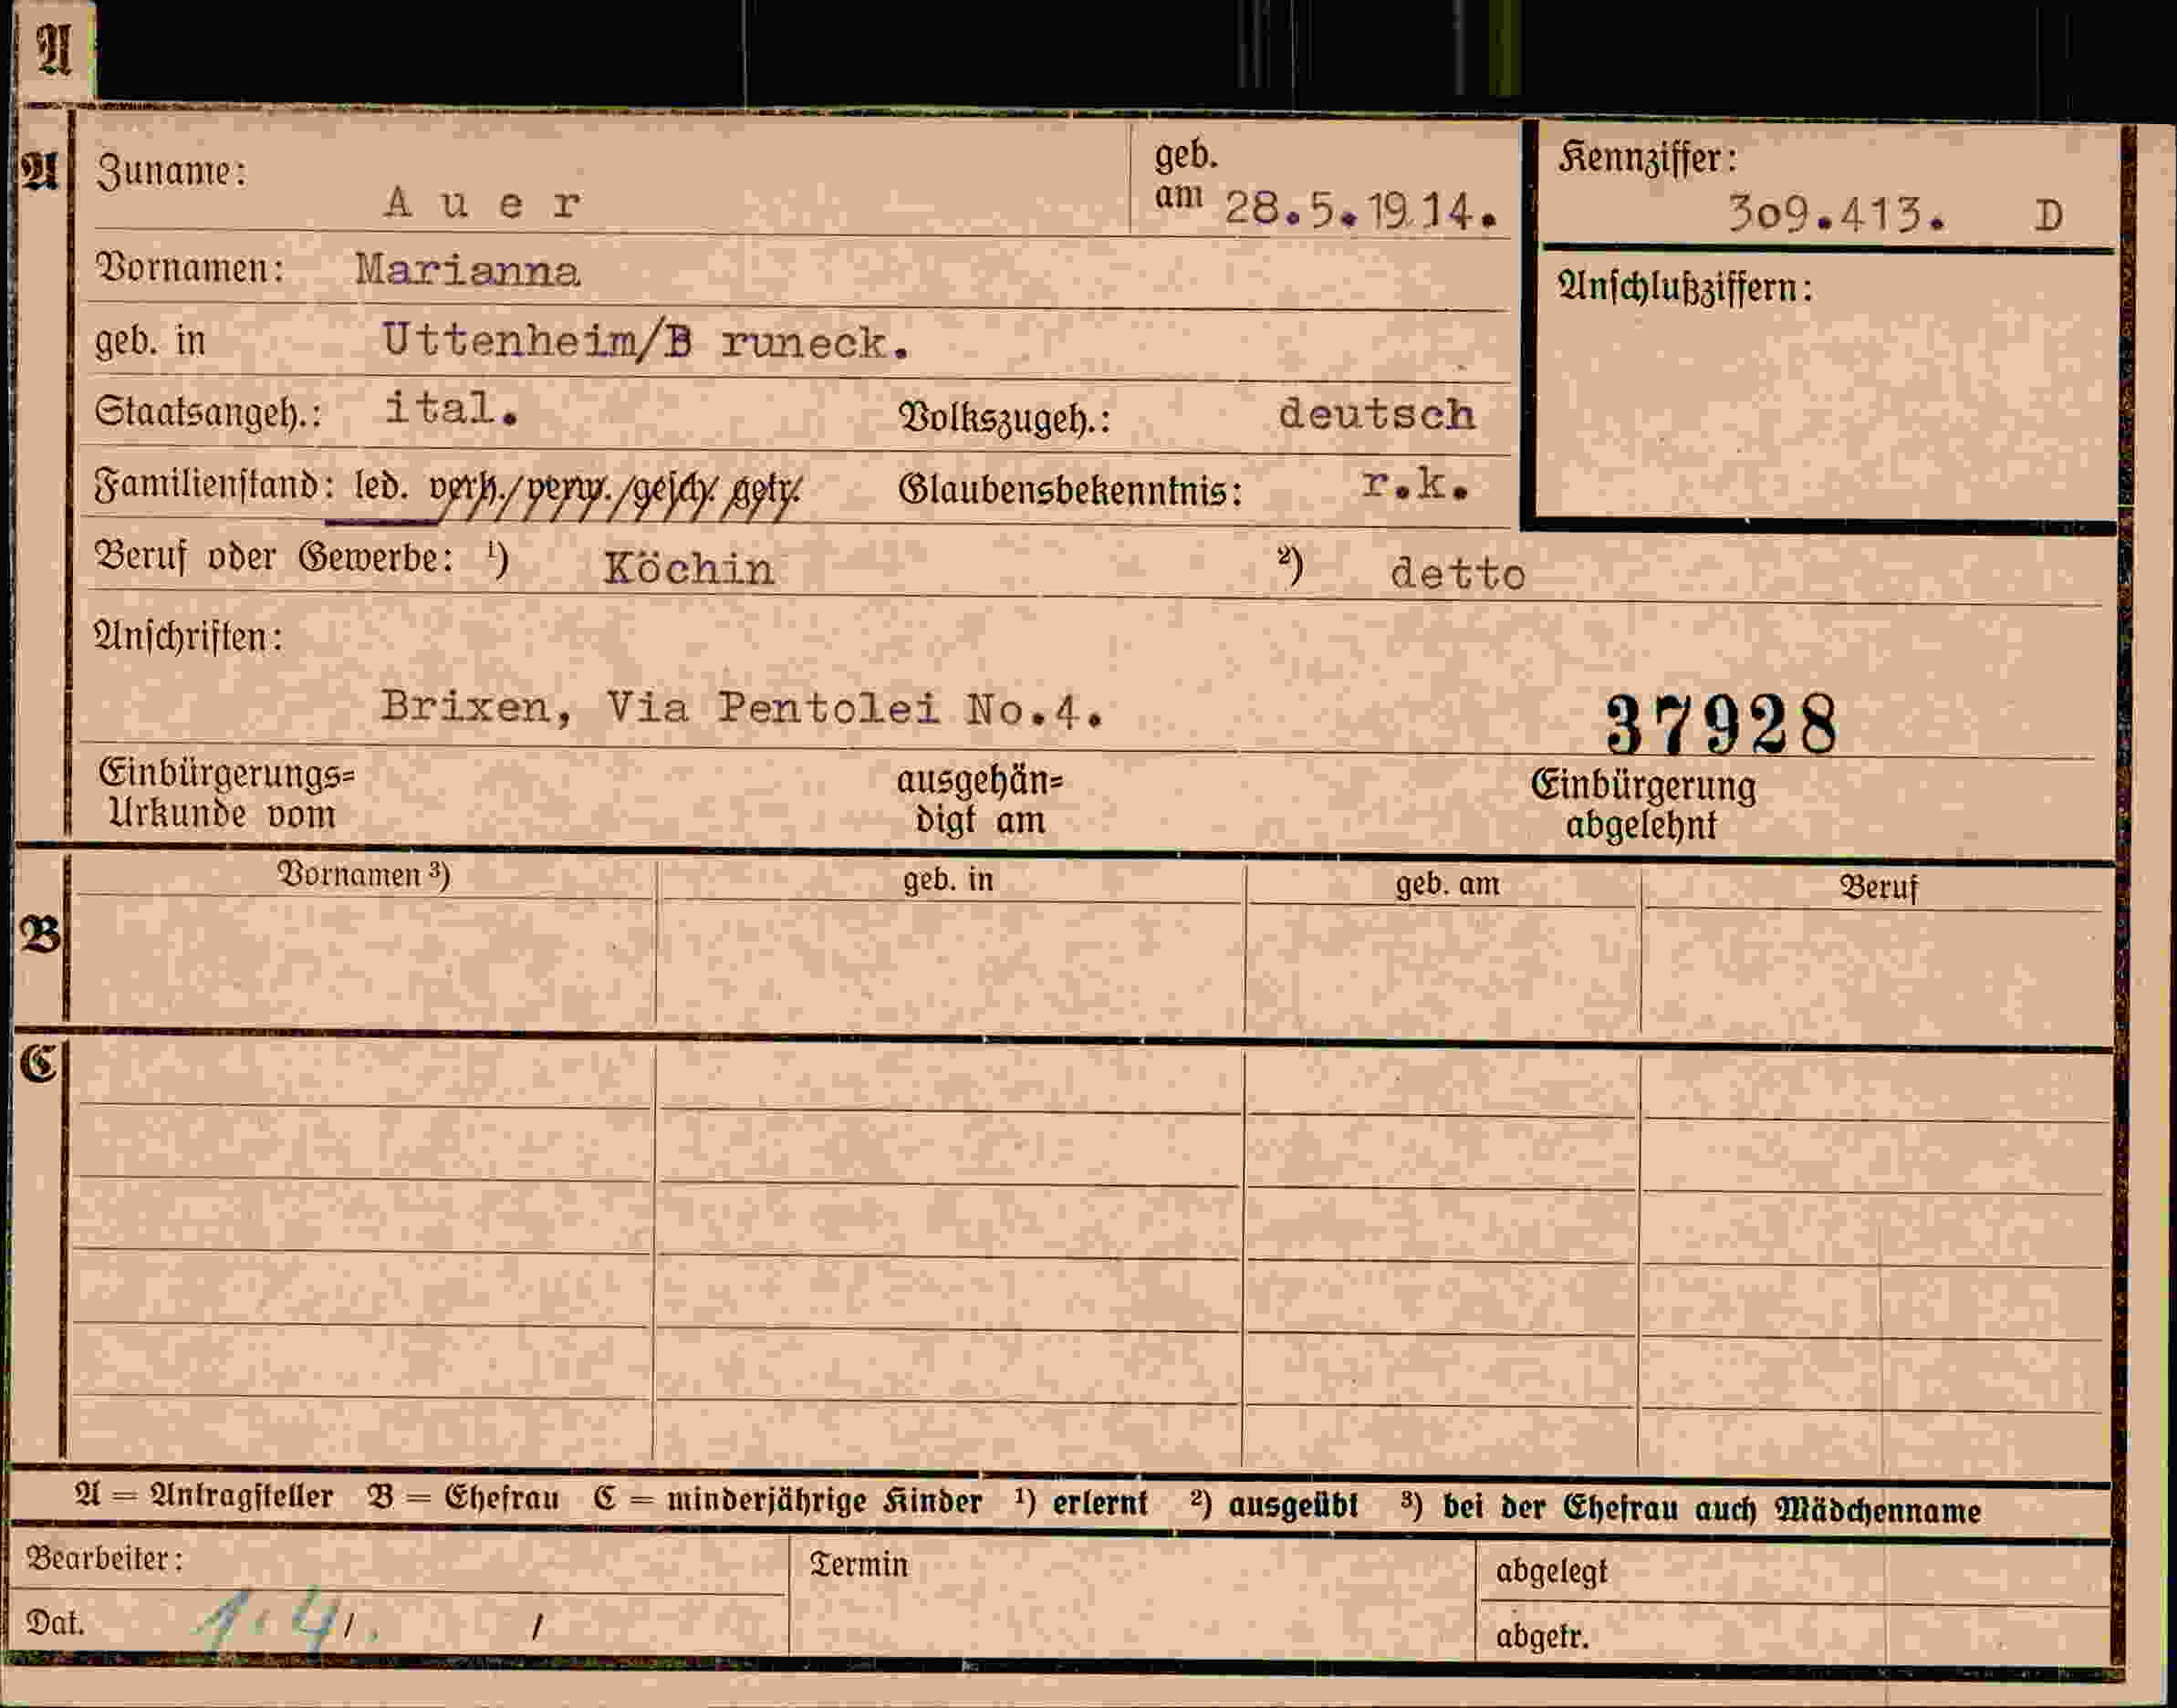 A
A
Zuname: A u e r geb. am 28.5.1914. Kennziffer: 309.413. D
Vornamen: Marianna
Anschlußziffern:
geb. in Uttenheim/B runeck.
Staatsangeh.: ital. Volkszugeh.: deutsch
Familienstand: led. verh./verw./gesch. getr. Glaubensbekenntnis: r.k.
Beruf oder Gewerbe: ¹) Köchin ²) detto
Anschriften:
Brixen, Via Pentolei No.4. 37928
Einbürgerungs= ausgehän= Einbürgerung
Urkunde vom digt am abgelehnt
B
Vornamen ³) geb. in geb. am Beruf
C
A = Antragsteller B = Ehefrau C = minderjährige Kinder ¹) erlernt ²) ausgeübt ³) bei der Ehefrau auch Mädchenname
Bearbeiter: Termin abgelegt
Dat. 1.4/. / abgetr.